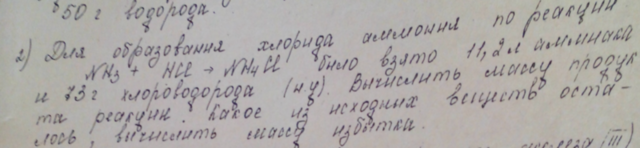 50 г водорода.
2) Для образования хлорида аммония по реакции
NH3 + HCl → NH4Cl было взято 11,2 л аммиака
и 73 г хлороводорода (н.у). Вычислить массу продук
та реакции. Какое из исходных веществ оста-
лось, вичислить массу избытка.
железа (III)